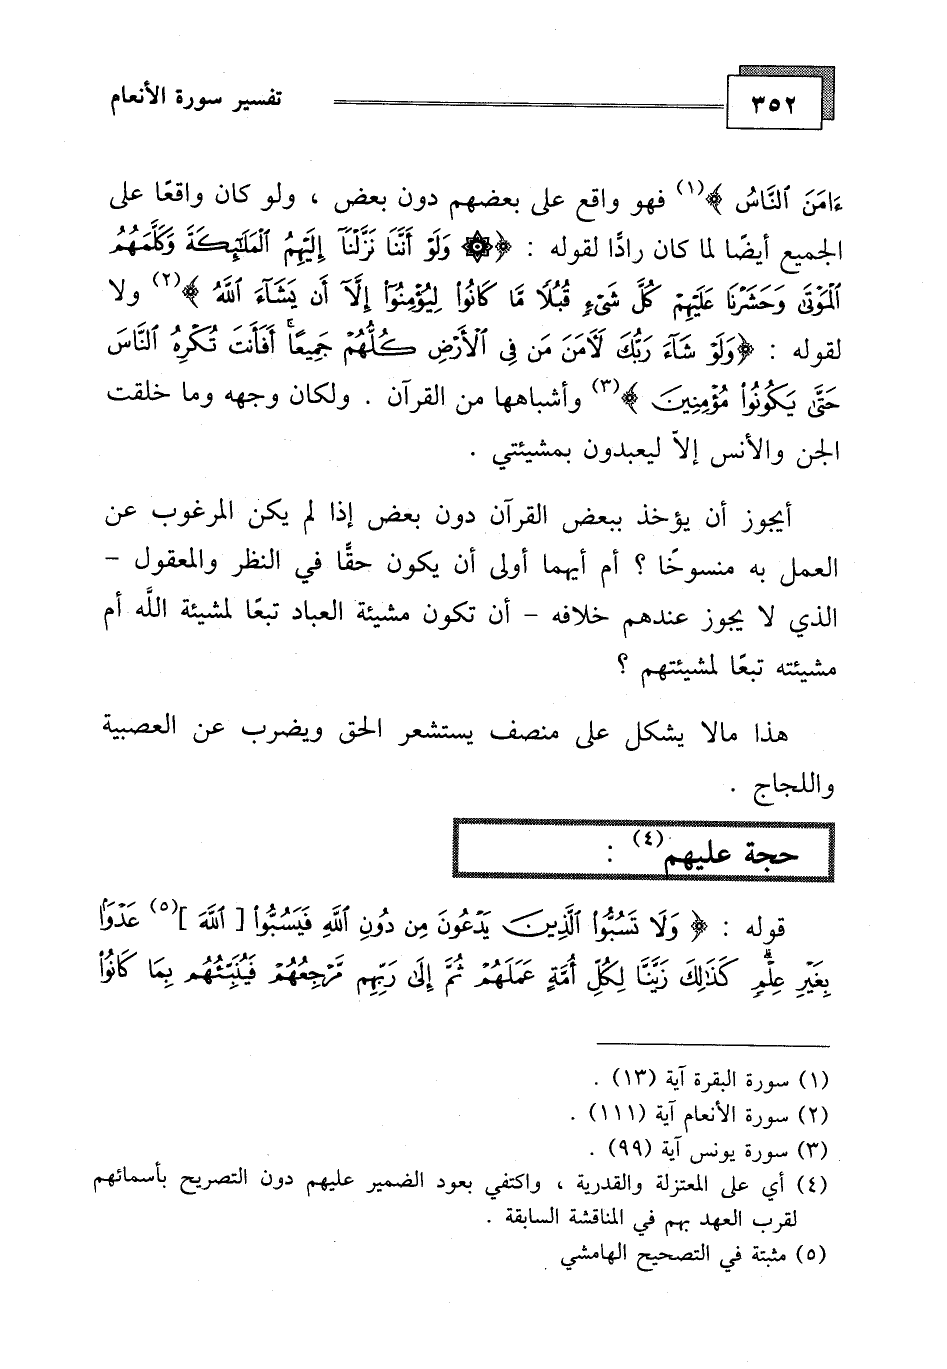 ٣٥٢
تفسير سورة الأنعام
ءَامَنَ ٱلنَّاسُ ﴾(١) فهو واقع على بعضهم دون بعض ، ولو كان واقعًا على
الجميع أيضًا لما كان رادًّا لقوله : ﴿ ۞ وَلَوۡ أَنَّنَا نَزَّلۡنَآ إِلَيۡهِمُ ٱلۡمَلَٰٓئِكَةَ وَكَلَّمَهُمُ
ٱلۡمَوۡتَىٰ وَحَشَرۡنَا عَلَيۡهِمۡ كُلَّ شَيۡءٖ قُبُلٗا مَّا كَانُواْ لِيُؤۡمِنُوٓاْ إِلَّآ أَن يَشَآءَ ٱللَّهُ ﴾(٢) ولا
لقوله : ﴿وَلَوۡ شَآءَ رَبُّكَ لَأٓمَنَ مَن فِي ٱلۡأَرۡضِ كُلُّهُمۡ جَمِيعًاۚ أَفَأَنتَ تُكۡرِهُ ٱلنَّاسَ
حَتَّىٰ يَكُونُواْ مُؤۡمِنِينَ ﴾(٣) وأشباهها من القرآن . ولكان وجهه وما خلقت
الجن والأنس إلاّ ليعبدون بمشيئتي .
أيجوز أن يؤخذ ببعض القرآن دون بعض إذا لم يكن المرغوب عن
العمل به منسوخًا ؟ أم أيهما أولى أن يكون حقًّا في النظر والمعقول –
الذي لا يجوز عندهم خلافه – أن تكون مشيئة العباد تبعًا لمشيئة اللَّه أم
مشيئته تبعًا لمشيئتهم ؟
هذا مالا يشكل على منصف يستشعر الحق ويضرب عن العصبية
واللجاج .
حجة عليهم(٤) :
قوله : ﴿ وَلَا تَسُبُّواْ ٱلَّذِينَ يَدۡعُونَ مِن دُونِ ٱللَّهِ فَيَسُبُّواْ [ ٱللَّهَ ](٥) عَدۡوَۢا
بِغَيۡرِ عِلۡمٖۗ كَذَٰلِكَ زَيَّنَّا لِكُلِّ أُمَّةٍ عَمَلَهُمۡ ثُمَّ إِلَىٰ رَبِّهِم مَّرۡجِعُهُمۡ فَيُنَبِّئُهُم بِمَا كَانُواْ
(١) سورة البقرة آية (١٣) .
(٢) سورة الأنعام آية (١١١) .
(٣) سورة يونس آية (٩٩) .
(٤) أي على المعتزلة والقدرية ، واكتفي بعود الضمير عليهم دون التصريح بأسمائهم
لقرب العهد بهم في المناقشة السابقة .
(٥) مثبتة في التصحيح الهامشي .